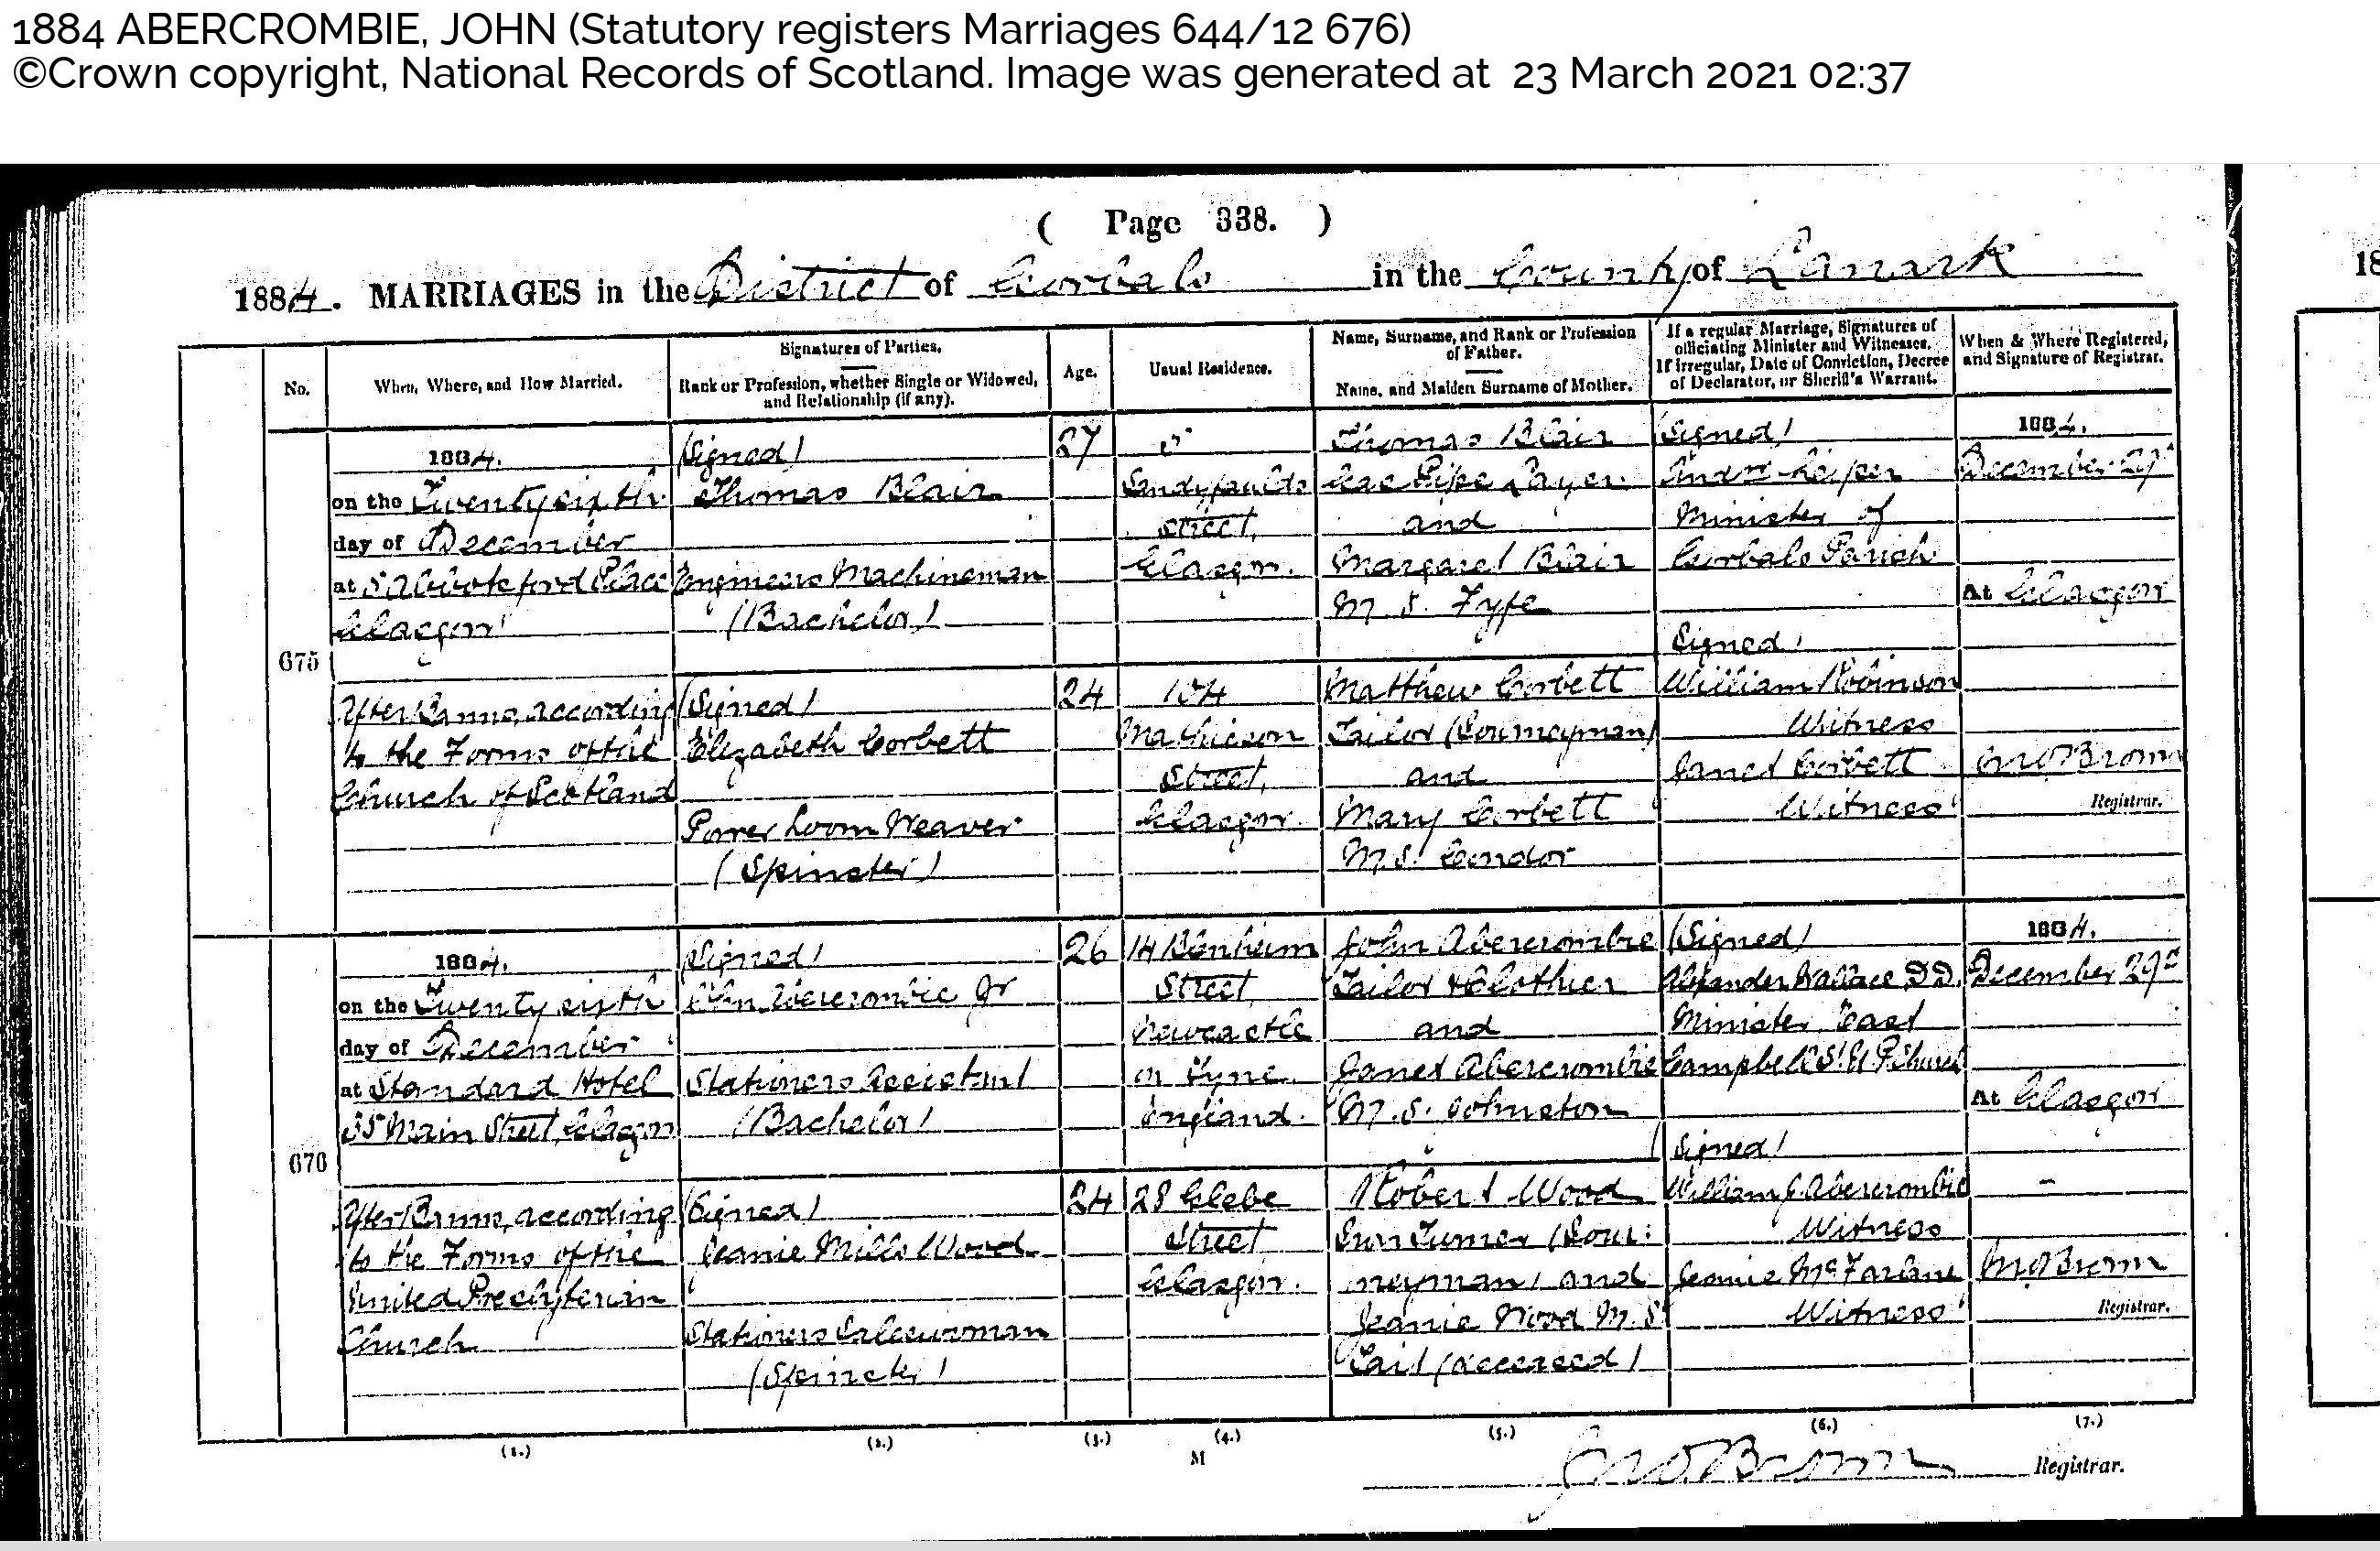 1884 ABERCROMBIE, JOHN (Statutory registers Marriages 644/12 676)
©Crown copyright, National Records of Scotland. Image was generated at 23 March 2021 02:37
( Page 338. )
1884. MARRIAGES in the District of Gorbals in the County of Lanark
No.
When, Where, and How Married.
Signatures of Parties.
Rank or Profession, whether Single or Widowed,
and Relationship (if any).
Age.
Usual Residence.
Name, Surname, and Rank or Profession
of Father.
Name, and Maiden Surname of Mother.
If a regular Marriage, Signatures of
officiating Minister and Witnesses.
If irregular, Date of Conviction, Decree
of Declarator, or Sheriff's Warrant.
When & Where Registered,
and Signature of Registrar.
675
1884.
on the Twenty sixth
day of December
at 5 Abbotsford Place
Glasgow
After Banns, according
to the Forms of the
Church of Scotland
(Signed)
Thomas Blair
Engineers Machineman
(Bachelor)
(Signed)
Elizabeth Corbett
Power Loom Weaver
(Spinster)
27
24
5
Sandyfaulds
Street,
Glasgow.
104
Mathieson
Street,
Glasgow.
Thomas Blair
Gas Pipe Layer.
and
Margaret Blair
M. S. Fyfe
Matthew Corbett
Tailor (Journeyman)
and
Mary Corbett
M.S. Condor
(Signed)
Andw Leiper
Minister of
Gorbals Parish
Signed)
William Robinson
Witness
Janet Corbett
Witness
1884.
December 29
At Glasgow
Brown
Registrar.
676
1884.
on the Twenty sixth
day of December
at Standard Hotel
35 Main Street, Glasgow
After Banns, according
to the Forms of the
United Presbyterian
Church
(Signed)
John Abercrombie Jr
Stationers Assistant
(Bachelor)
(Signed)
Jeanie Mills Wood
Stationers Saleswoman
(Spinster)
26
24
14 Blenheim
Street
Newcastle
on Tyne
England.
28 Glebe
Street
Glasgow.
John Abercrombie
Tailor & Clothier
and
Janet Abercrombie
M. S. Johnston
Robert Wood
Iron Turner (Jour:
neyman) and
Jeanie Wood M. S.
Tait (deceased)
(Signed)
Alexander Wallace D.D.
Minister East
Campbell St. U.P. Church
(Signed)
William J Abercrombie
Witness
Jeanie McFarlane
Witness
1884.
December 29
At Glasgow
Brown
Registrar.
(1.)
(2.)
(3.)
(4.)
(5.)
(6.)
(7.)
M
Brown
Registrar.
18